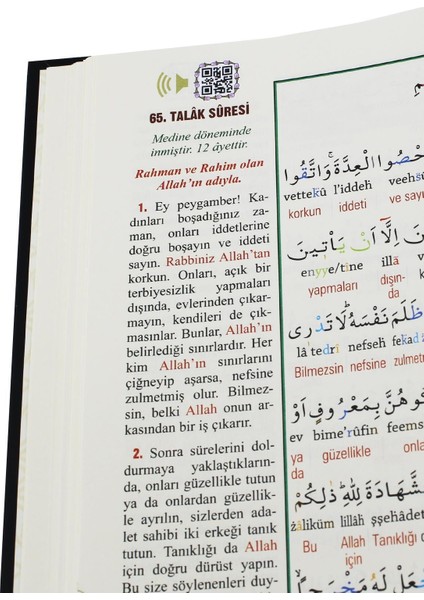 65. TALÂK SÛRESİ
Medine döneminde
inmiştir. 12 âyettir.
Rahman ve Rahim olan
Allah'ın adıyla.
1. Ey peygamber! Ka-
dınları boşadığınız za-
man, onları iddetlerine
doğru boşayın ve iddeti
sayın. Rabbiniz Allah'tan
korkun. Onları, açık bir
terbiyesizlik yapmaları
dışında, evlerinden çıkar-
mayın, kendileri de çık-
masınlar. Bunlar, Allah'ın
belirlediği sınırlardır. Her
kim Allah'ın sınırlarını
çiğneyip aşarsa, nefsine
zulmetmiş olur. Bilmez-
sin, belki Allah onun ar-
kasından bir iş çıkarır.
2. Sonra sürelerini dol-
durmaya yaklaştıkların-
da, onları güzellikle tutun
ya da onlardan güzellik-
le ayrılın, sizlerden ada-
let sahibi iki erkeği tanık
tutun. Tanıklığı da Allah
için doğru dürüst yapın.
Bu size söylenenleri duy-
حْصُوا الْعِدَّةَ وَاتَّقُوا
vettekû l'iddeh veehs
korkun iddeti ve sayı
اِلَّٓا اَنْ يَأْت۪ينَ
enyye/tîne illâ
yapmaları dışın-
da
ظَلَمَ نَفْسَهُ لَا تَدْر۪ي
lâ tedrî nefseh fekad
Bilmezsin nefsine zulmetm
وهُنَّ بِمَعْرُوفٍ اَوْ
ev bime'rûfin feems
ya güzellikle onla
da
لشَّهَادَةَ لِلّٰهِ ذٰلِكُمْ
żâliküm lillâh şşehâdet
Bu Allah Tanıklığı
için
جْعَلْ لَهُ مَخْرَجًا